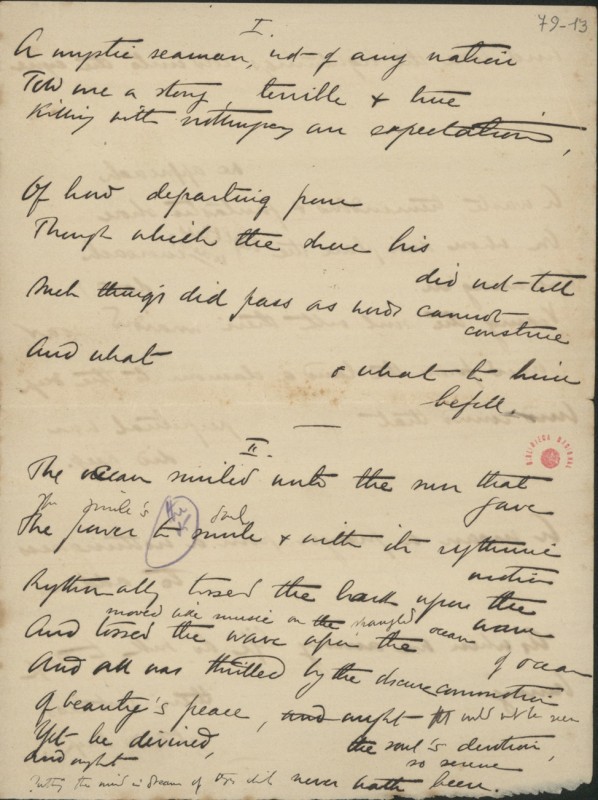 79-13
I.
A mystic seaman, not of any nation
Told me a story, terrible & true
Killing with nothingness an expectation,
Of how departing from
Though which the shore his
did not tell
Such things did pass as words cannot
construe
And what & what to him
befell.
II.
The ocean smiled unto the sun that
gave
The smile's soul
The power to smile & with its rythmic
motion
Rythmically tossed the bark upon the
wave
moved like music on the ocean
And tossed the wave upon the of ocean
And all was thrilled by the obscure commotion
Of beauty's peace, and aught could not be seen
Yet be divined, the soul's devotion,
and aught so serene
the mind in dream of never hath been.